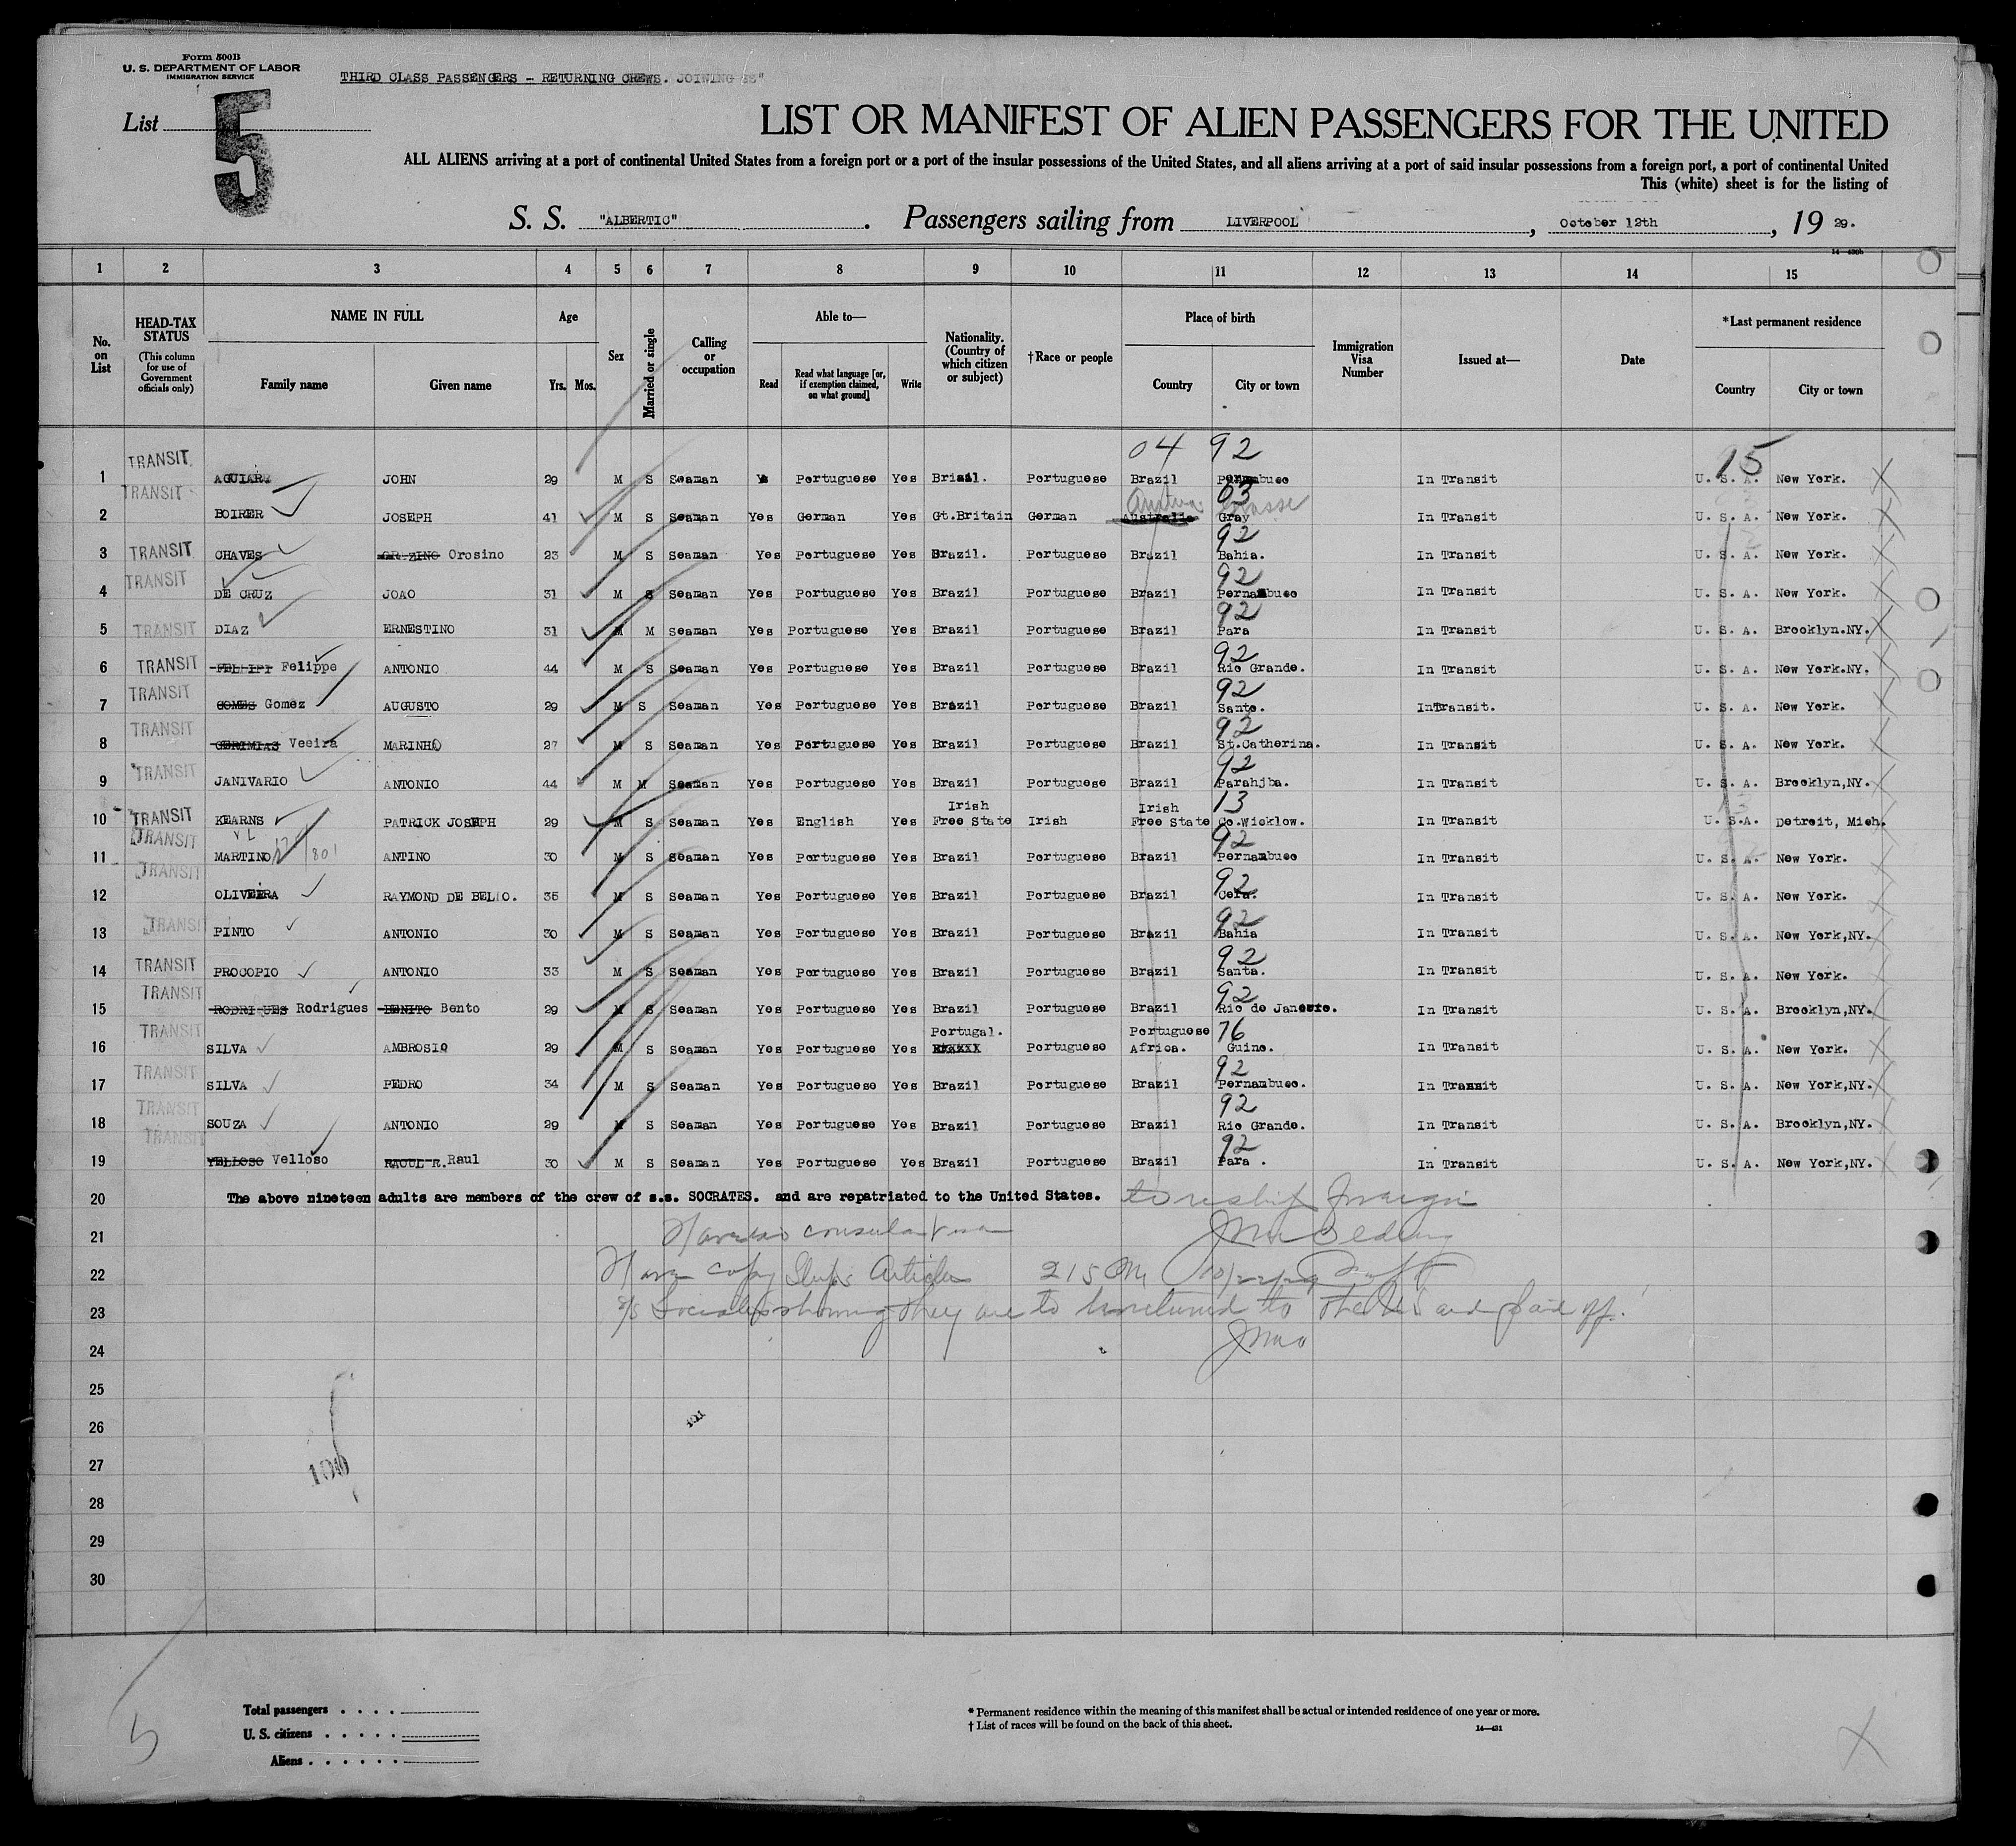 Form 500B
U. S. DEPARTMENT OF LABOR
IMMIGRATION SERVICE
THIRD CLASS PASSENGERS - RETURNING CREWS. JOINING
List 5
LIST OR MANIFEST OF ALIEN PASSENGERS FOR THE UNITED
ALL ALIENS arriving at a port of continental United States from a foreign port or a port of the insular possessions of the United States, and all aliens arriving at a port of said insular possessions from a foreign port, a port of continental United
This (white) sheet is for the listing of
S. S. "ALBERTIC". Passengers sailing from LIVERPOOL, October 12th, 19 29.
1 2 3 4 5 6 7 8 9 10 11 12 13 14 15
No. on List
HEAD-TAX STATUS (This column for use of Government officials only)
NAME IN FULL
Family name Given name
Age
Yrs. Mos.
Sex
Married or single
Calling or occupation
Able to—
Read
Read what language [or, if exemption claimed, on what ground]
Write
Nationality. (Country of which citizen or subject)
†Race or people
Place of birth
Country City or town
Immigration Visa Number
Issued at—
Date
*Last permanent residence
Country City or town
04 92 15
1 TRANSIT AGUIAR JOHN 29 M S Seaman Portuguese Yes Portuguese Brazil Pernambuco In Transit U. S. A. New York.
03
2 TRANSIT BOIRER JOSEPH 41 M S Seaman Yes German Yes Gt.Britain German Australia Austria Gray In Transit U. S. A. New York.
92
3 TRANSIT CHAVES Orosino 23 M S Seaman Yes Portuguese Yes Brazil. Portuguese Brazil Bahia. In Transit U. S. A. New York.
92
4 TRANSIT DE CRUZ JOAO 31 M S Seaman Yes Portuguese Yes Brazil Portuguese Brazil Pernambuco In Transit U. S. A. New York.
92
5 TRANSIT DIAZ ERNESTINO 31 M M Seaman Yes Portuguese Yes Brazil Portuguese Brazil Para In Transit U. S. A. Brooklyn.NY.
92
6 TRANSIT FELLIPI Felippe ANTONIO 44 M S Seaman Yes Portuguese Yes Brazil Portuguese Brazil Rio Grande. In Transit U. S. A. New York.NY.
92
7 TRANSIT GOMES Gomez AUGUSTO 29 M S Seaman Yes Portuguese Yes Brazil Portuguese Brazil Santo. InTransit. U. S. A. New York.
92
8 TRANSIT GERIMIAS Veeira MARINHO 27 M S Seaman Yes Portuguese Yes Brazil Portuguese Brazil St.Catherina. In Transit U. S. A. New York.
92
9 TRANSIT JANIVARIO ANTONIO 44 M M Seaman Yes Portuguese Yes Brazil Portuguese Brazil Parahiba. In Transit U. S. A. Brooklyn,NY.
13
10 TRANSIT KEARNS PATRICK JOSEPH 29 M S Seaman Yes English Yes Irish Free State Irish Irish Free State Co.Wicklow. In Transit U. S.A. Detroit, Mich.
92
11 TRANSIT MARTINO ANTINO 30 M S Seaman Yes Portuguese Yes Brazil Portuguese Brazil Pernambuco In Transit U. S. A. New York.
92
12 TRANSIT OLIVEIRA RAYMOND DE BELLO. 35 M S Seaman Yes Portuguese Yes Brazil Portuguese Brazil Cera. In Transit U. S. A. New York.
92
13 TRANSIT PINTO ANTONIO 30 M S Seaman Yes Portuguese Yes Brazil Portuguese Brazil Bahia In Transit U. S. A. New York,NY.
92
14 TRANSIT PROCOPIO ANTONIO 33 M S Seaman Yes Portuguese Yes Brazil Portuguese Brazil Santa. In Transit U. S. A. New York.
92
15 TRANSIT RODRIQUES Rodrigues BENITO Bento 29 M S Seaman Yes Portuguese Yes Brazil Portuguese Brazil Rio de Janeiro. In Transit U. S. A. Brooklyn,NY.
76
16 TRANSIT SILVA AMBROSIO 29 M S Seaman Yes Portuguese Yes Portugal. Portuguese Portuguese Africa. Guine. In Transit U. S. A. New York.
92
17 TRANSIT SILVA PEDRO 34 M S Seaman Yes Portuguese Yes Brazil Portuguese Brazil Pernambuco. In Transit U. S. A. New York,NY.
92
18 TRANSIT SOUZA ANTONIO 29 M S Seaman Yes Portuguese Yes Brazil Portuguese Brazil Rio Grande. In Transit U. S. A. Brooklyn,NY.
92
19 TRANSIT VELLOSO Velloso RAOUL R. Raul 30 M S Seaman Yes Portuguese Yes Brazil Portuguese Brazil Para . In Transit U. S. A. New York,NY.
20 The above nineteen adults are members of the crew of s.s. SOCRATES. and are repatriated to the United States. to reship foreign
21 Have no consular visa
22 Have copy Ships Articles
23 showing they are to be returned to the US and paid off.
24
25
26
27
28
29
30
100
Total passengers
U. S. citizens
Aliens
5
* Permanent residence within the meaning of this manifest shall be actual or intended residence of one year or more.
† List of races will be found on the back of this sheet.
14—431